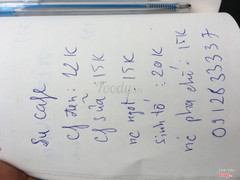 Su cafe
cf đen : 12K
cf sữa : 15K
nc ngọt : 15K
sinh tố : 20K
nc pha chế : 15K
0912833337
foody.vn